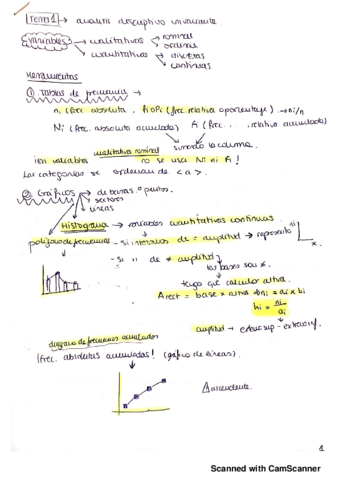 Tema 1 → análisis descriptivo univariante
Variables → cualitativas → nominal
→ ordinal
→ cuantitativas → discretas
→ continuas
Herramientas
① Tablas de frecuencia →
ni (frec. absoluta, fi o Pi (frec. relativa o porcentaje) → ni/n
Ni (frec. absoluta acumulada) Fi (frec. relativa acumulada)
sumando la columna
¡en variables cualitativa nominal no se usa Ni ni Fi!
Las categorías se ordenan de < a >.
② Gráficos → de barras o puntos
sectores
líneas
Histograma → variables cuantitativas continuas
polígono de frecuencias - Si intervalos de = amplitud → represento ni
x
- Si " de ≠ amplitud
las bases son ≠
tengo que calcular altura
A rect = base × altura → ni = ai × hi
hi = ni/ai
amplitud → extremo sup - extremo inf.
diagrama de frecuencias acumuladas
¡frec. absolutas acumuladas! (gráfico de líneas)
ascendente
1
Scanned with CamScanner